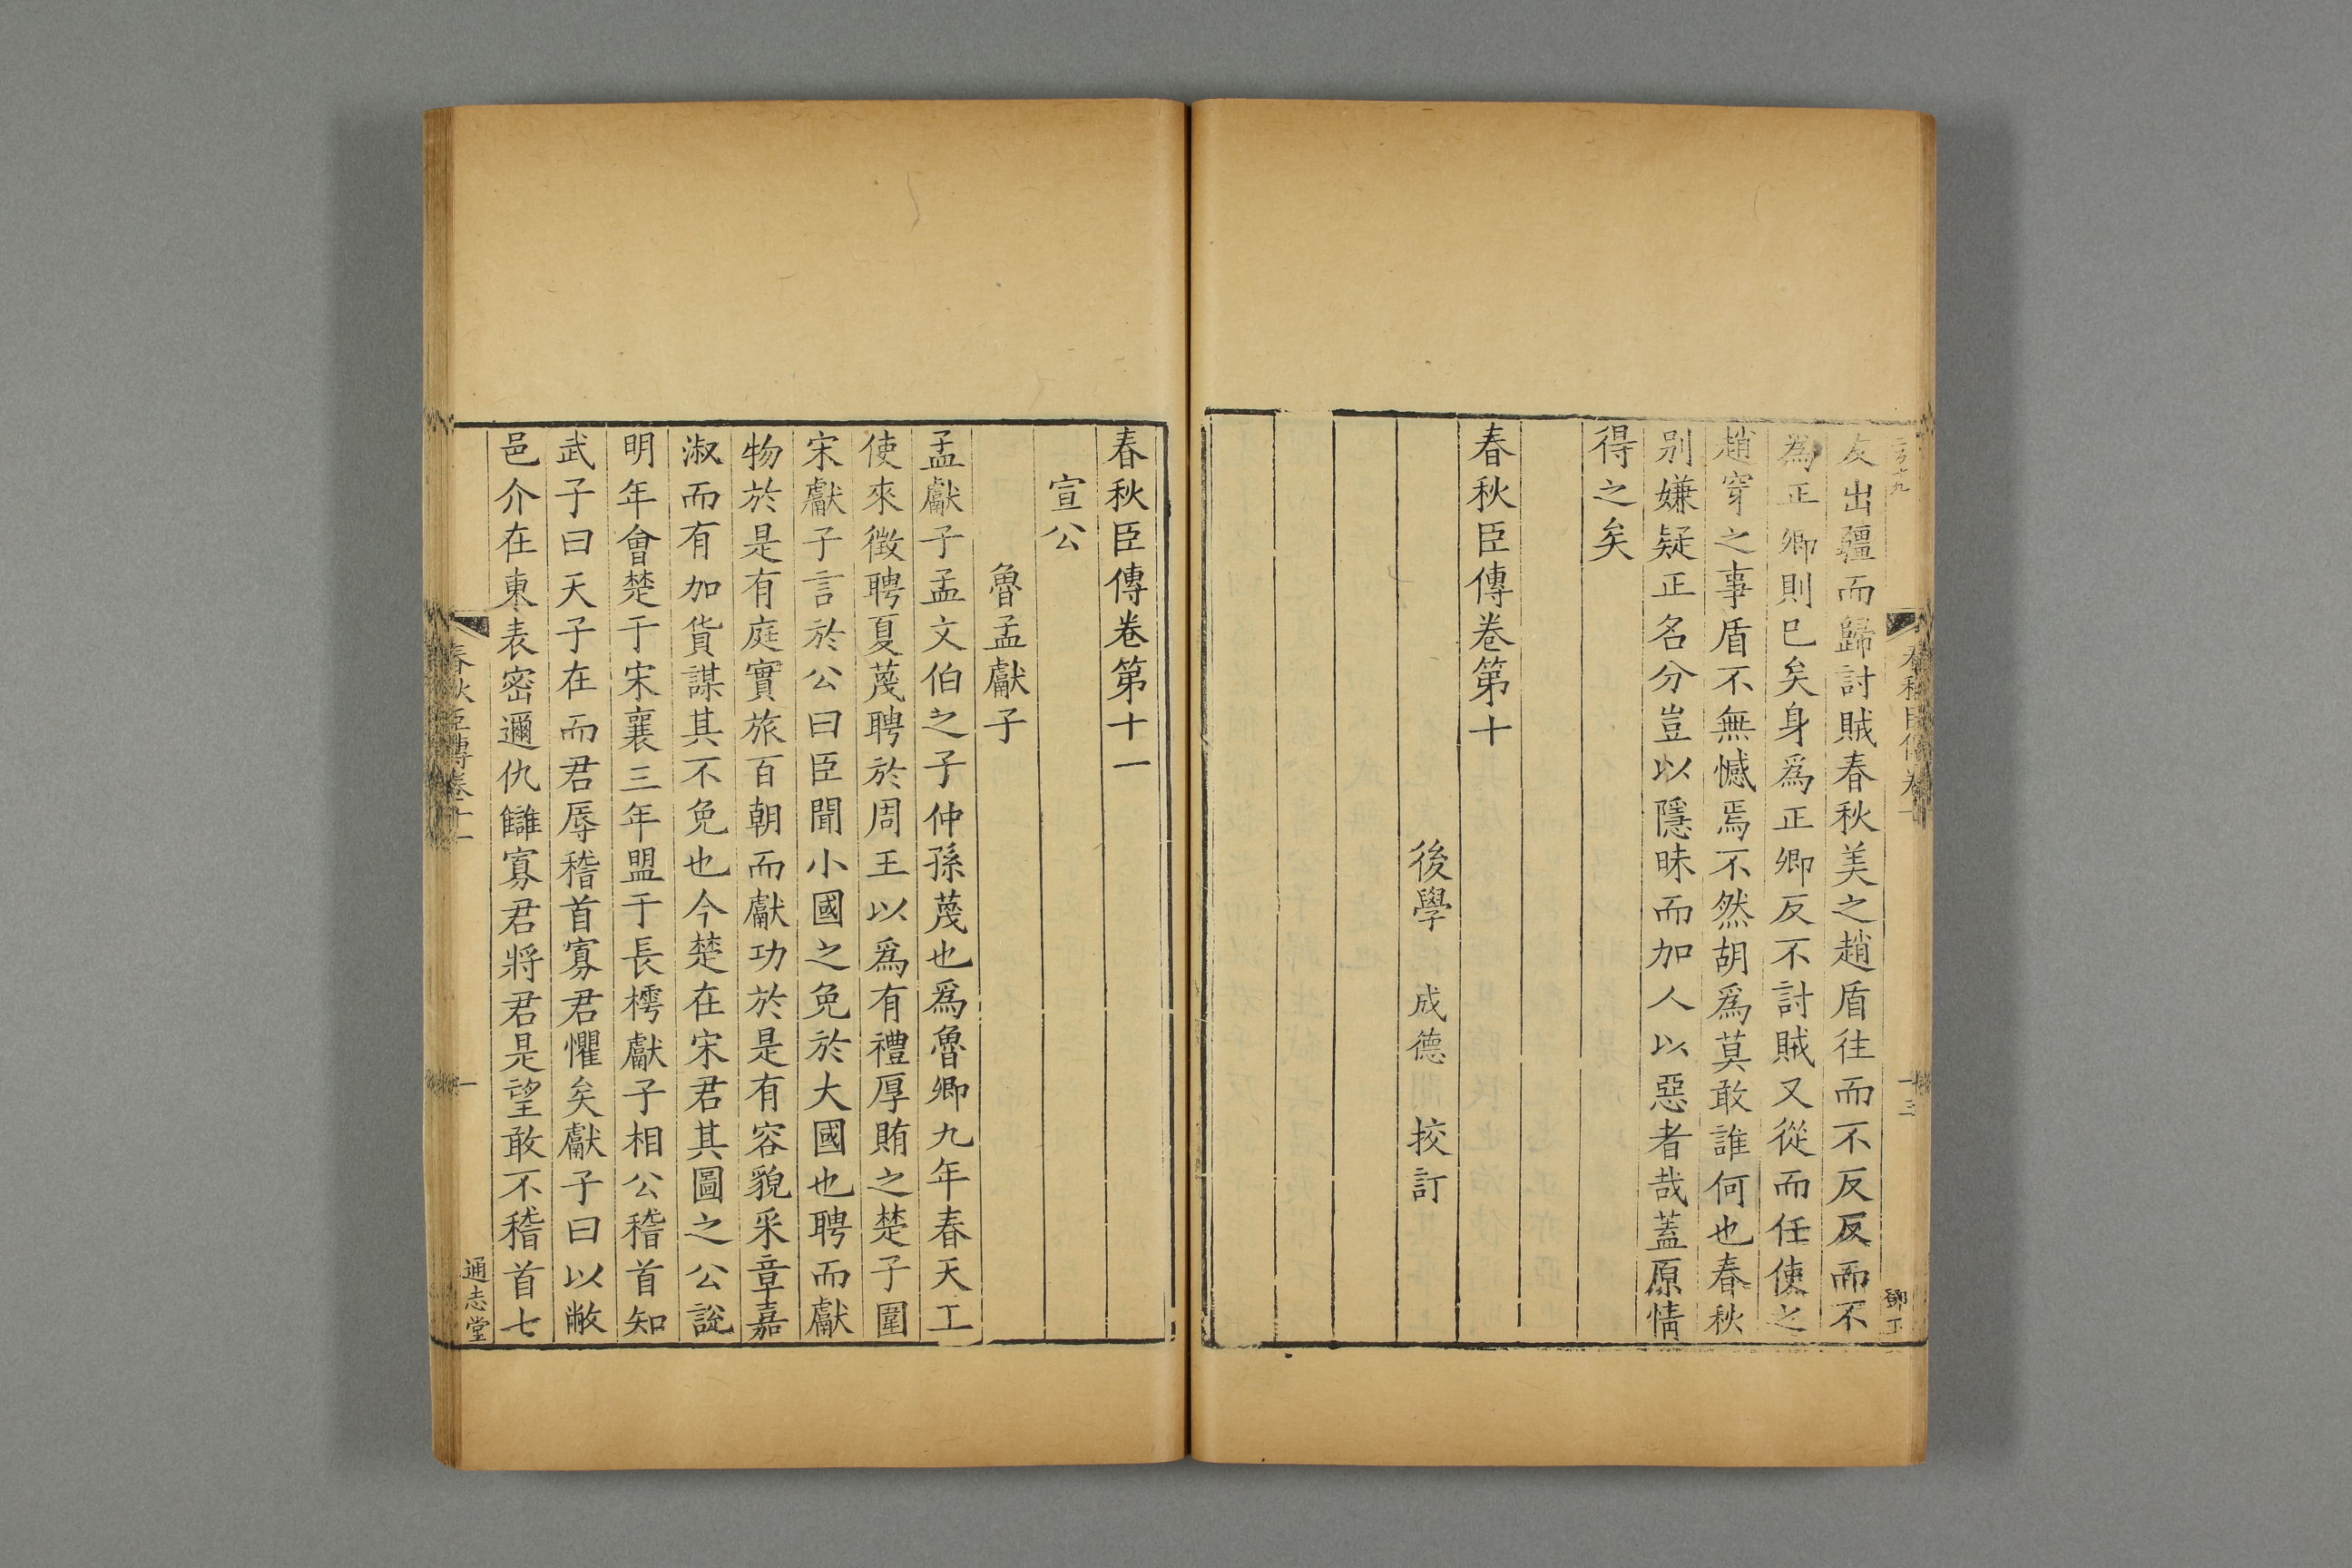 友出疆而歸討賊春秋美之趙盾往而不反反而不
為正卿則已矣身爲正卿反不討賊又從而任使之
趙穿之事盾不無憾焉不然胡爲莫敢誰何也春秋
别嫌疑正名分豈以隱昧而加人以惡者哉蓋原情
得之矣
春秋臣傳卷第十
後學 成德 挍訂
春秋臣傳卷第十一
宣公
魯孟獻子
孟獻子孟文伯之子仲孫蔑也爲魯卿九年春天王
使來徵聘夏蔑聘於周王以爲有禮厚賄之楚子圍
宋獻子言於公曰臣聞小國之免於大國也聘而獻
物於是有庭實旅百朝而獻功於是有容貌采章嘉
淑而有加貨謀其不免也今楚在宋君其圖之公說
明年會楚于宋襄三年盟于長樗獻子相公稽首知
武子曰天子在而君辱稽首寡君懼矣獻子曰以敝
邑介在東表密邇仇讎寡君將君是望敢不稽首七
春秋臣傳卷十一
一
通志堂